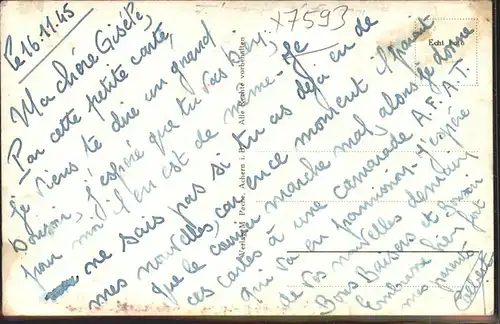 Le 16.11.45
x7593
Ma chère Gisèle,
Par cette petite carte,
je viens te dire un grand
bonjour, j'espère que tu vas bien,
pour moi il en est de même. Je
ne sais pas si tu as déjà eu de
mes nouvelles, car en ce moment il parait
que le courrier marche mal, alors je donne
ces cartes à une camarade A.F.A.T.
qui va en permission. J'espère
de vos nouvelles demain
Bons Baisers et Bonsoir
Embrasse bien fort
mes parents
Echt Foto
Verlag M. Pache, Achern i. B.
Alle Rechte vorbehalten